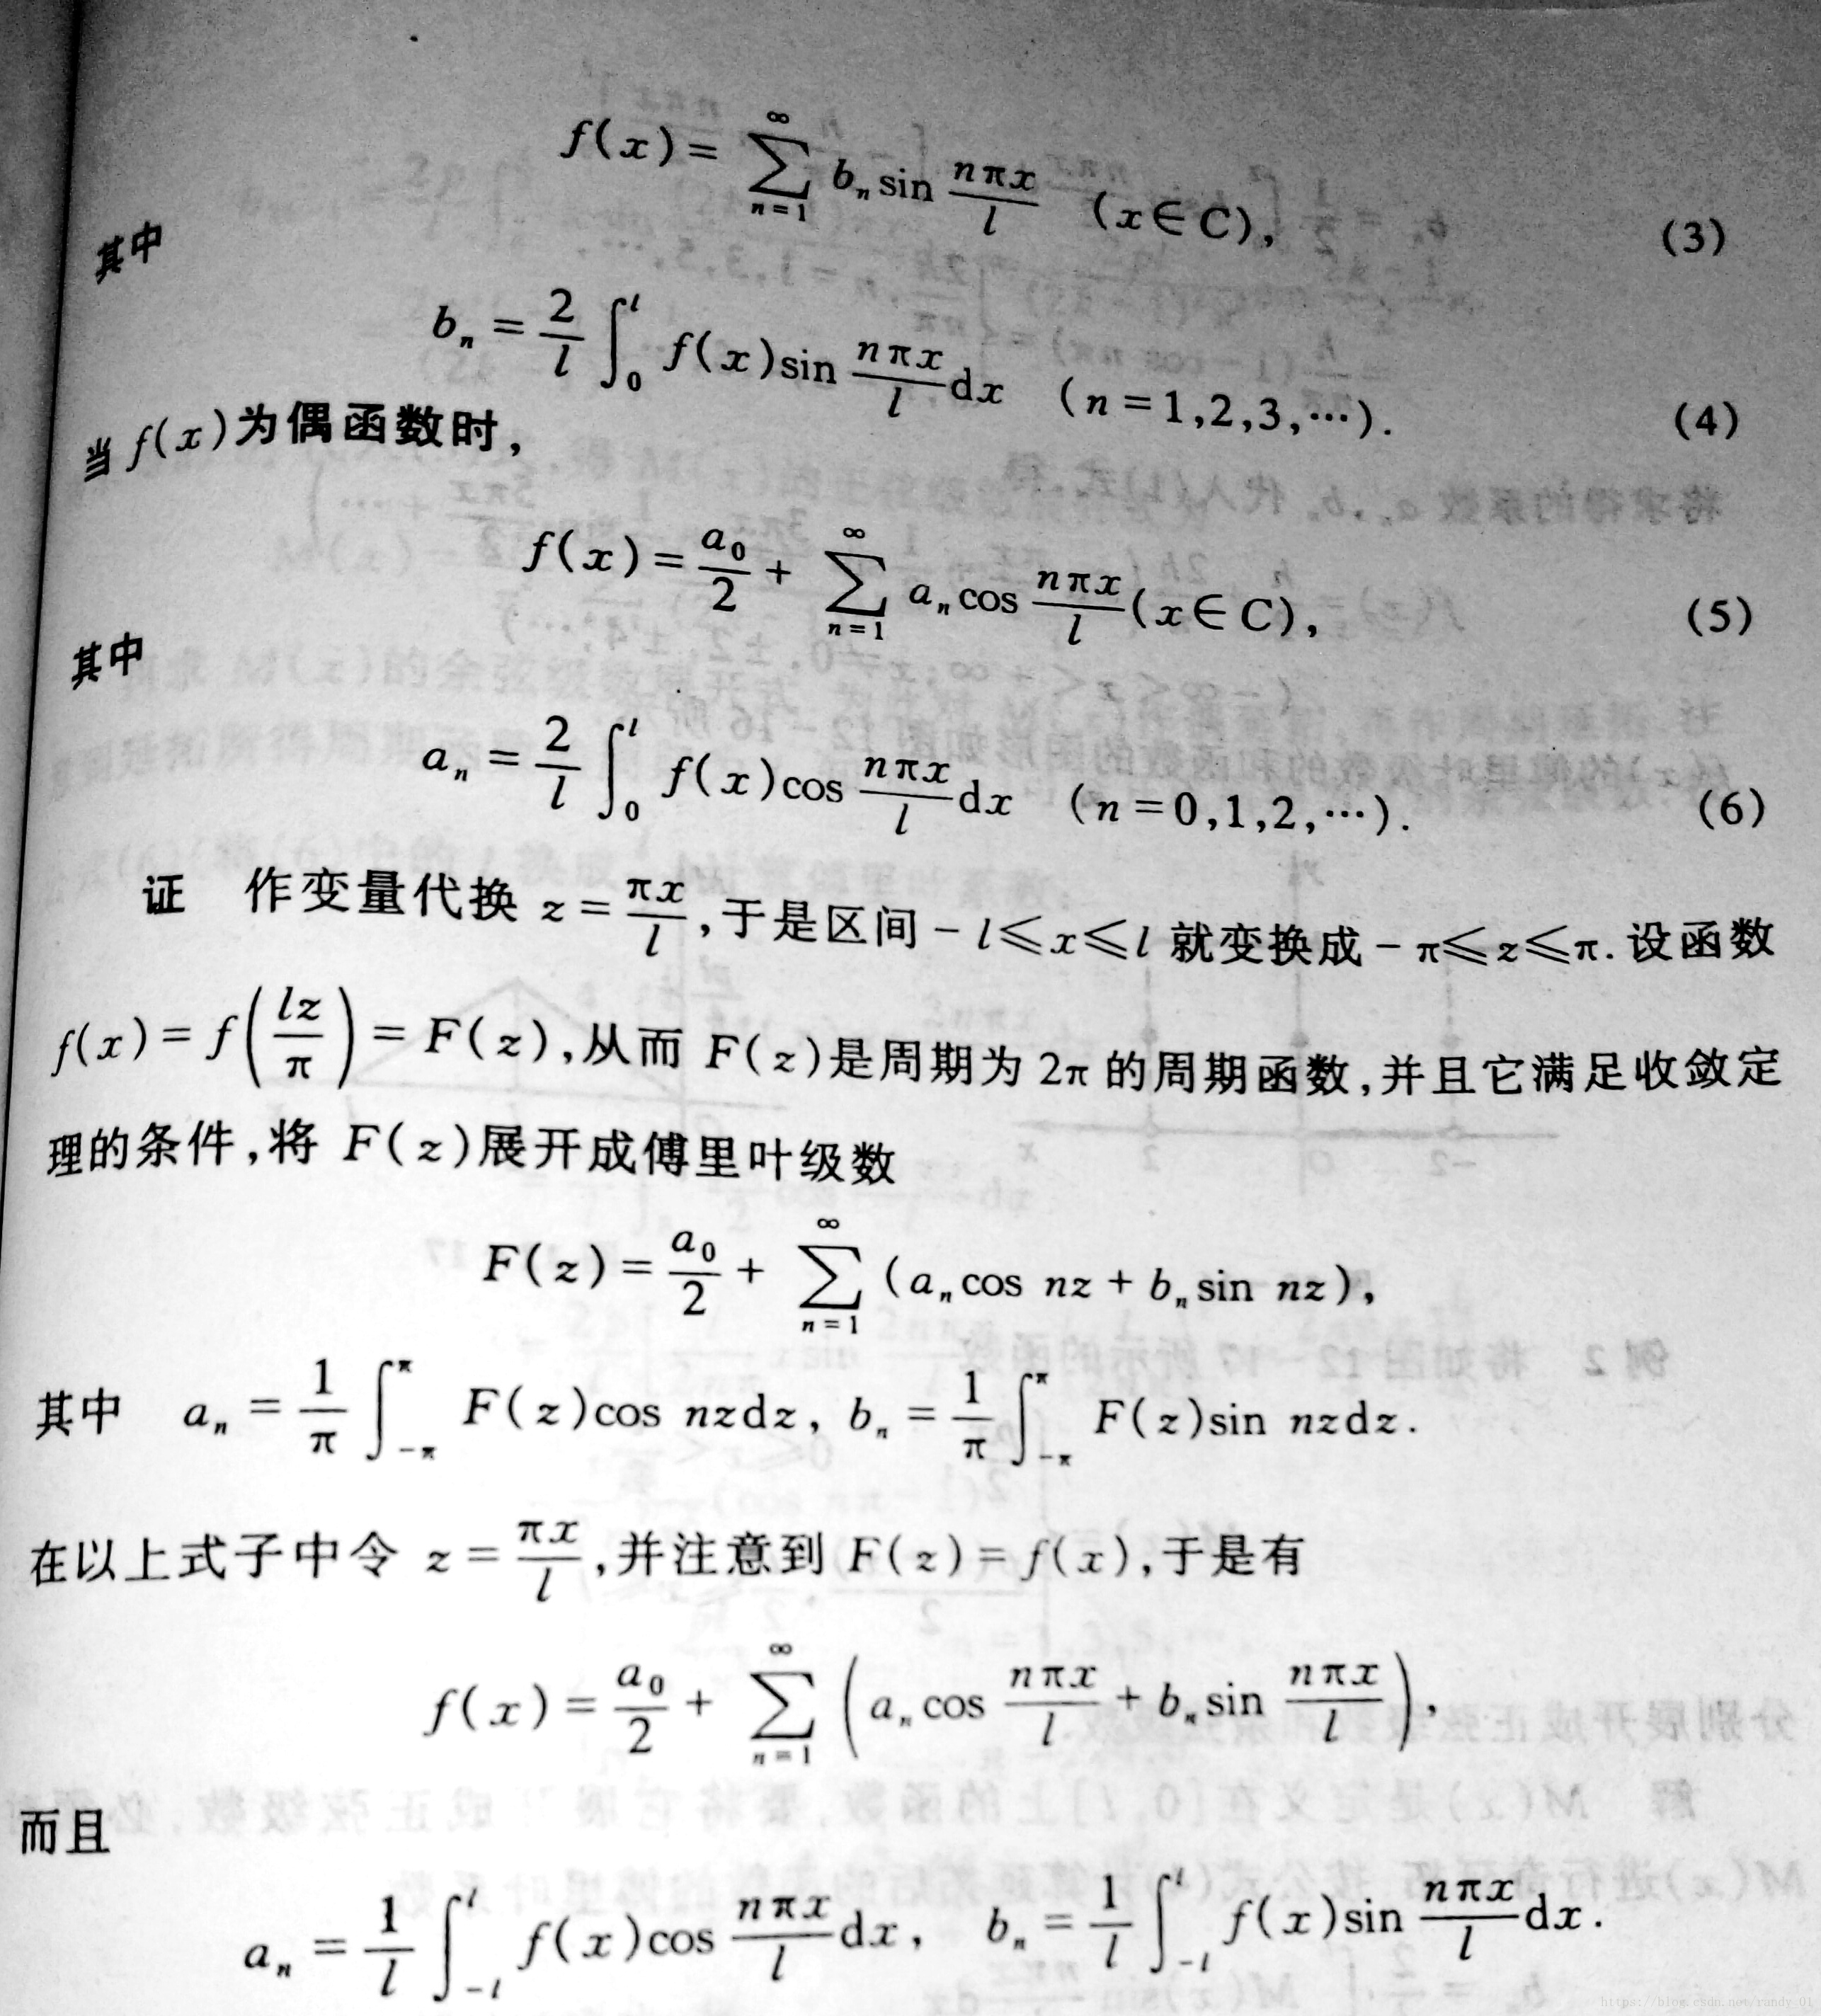 f(x) = \sum_{n=1}^{\infty} b_n \sin \frac{nπx}{l} (x∈C), (3)
其中
b_n = \frac{2}{l} \int_0^l f(x) \sin \frac{nπx}{l} dx (n=1,2,3,⋯). (4)
当 f(x)为偶函数时,
f(x) = \frac{a_0}{2} + \sum_{n=1}^{\infty} a_n \cos \frac{nπx}{l} (x∈C), (5)
其中
a_n = \frac{2}{l} \int_0^l f(x) \cos \frac{nπx}{l} dx (n=0,1,2,⋯). (6)
证 作变量代换 z = \frac{πx}{l},于是区间 -l≤x≤l 就变换成 -π≤z≤π. 设函数
f(x) = f\left(\frac{lz}{π}\right) = F(z),从而 F(z)是周期为 2π 的周期函数,并且它满足收敛定
理的条件,将 F(z)展开成傅里叶级数
F(z) = \frac{a_0}{2} + \sum_{n=1}^{\infty} (a_n \cos nz + b_n \sin nz),
其中 a_n = \frac{1}{π} \int_{-π}^{π} F(z) \cos nz dz, b_n = \frac{1}{π} \int_{-π}^{π} F(z) \sin nz dz.
在以上式子中令 z = \frac{πx}{l},并注意到 F(z) = f(x),于是有
f(x) = \frac{a_0}{2} + \sum_{n=1}^{\infty} \left( a_n \cos \frac{nπx}{l} + b_n \sin \frac{nπx}{l} \right),
而且
a_n = \frac{1}{l} \int_{-l}^{l} f(x) \cos \frac{nπx}{l} dx, b_n = \frac{1}{l} \int_{-l}^{l} f(x) \sin \frac{nπx}{l} dx.
https://blog.csdn.net/randy_01